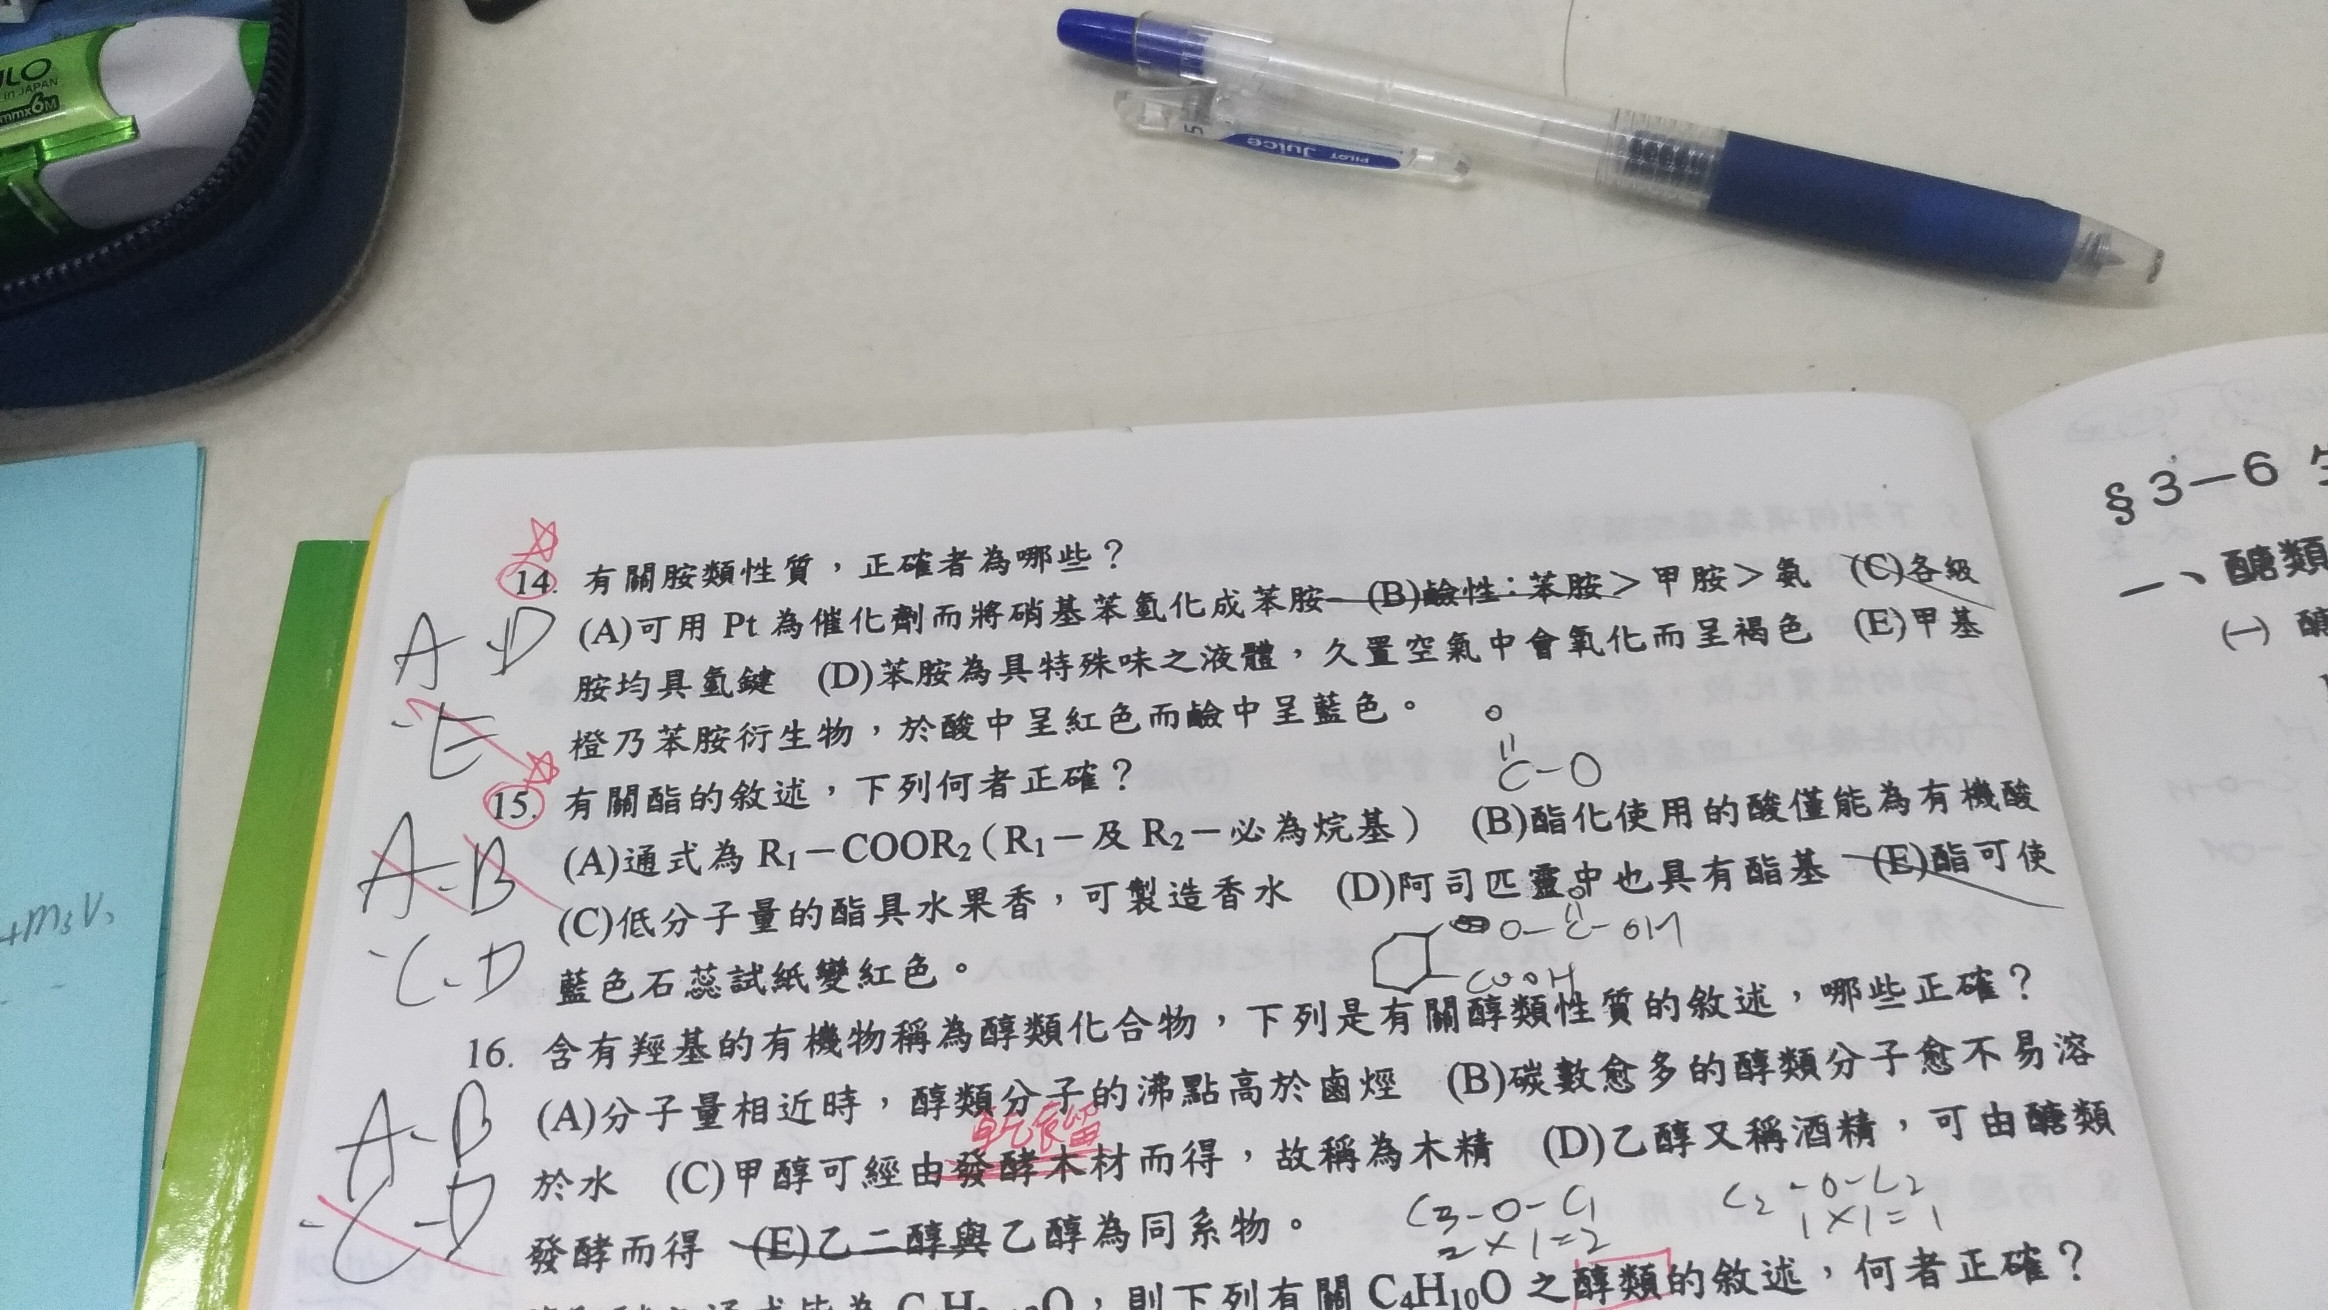 in JAPAN
mm×6M
PILOT Juice
5
+m₃V₃
§3－6
一、醣類
(一) 醣
14. 有關胺類性質，正確者為哪些？
(A)可用 Pt 為催化劑而將硝基苯氫化成苯胺 (B)鹼性：苯胺＞甲胺＞氨 (C)各級
胺均具氫鍵 (D)苯胺為具特殊味之液體，久置空氣中會氧化而呈褐色 (E)甲基
橙乃苯胺衍生物，於酸中呈紅色而鹼中呈藍色。
A D
E
O
C-O
15. 有關酯的敘述，下列何者正確？
(A)通式為 R₁－COOR₂（R₁－及 R₂－必為烷基） (B)酯化使用的酸僅能為有機酸
(C)低分子量的酯具水果香，可製造香水 (D)阿司匹靈中也具有酯基 (E)酯可使
藍色石蕊試紙變紅色。
A-B
C-D
O
O-C-OH
COOH
16. 含有羥基的有機物稱為醇類化合物，下列是有關醇類性質的敘述，哪些正確？
(A)分子量相近時，醇類分子的沸點高於鹵烴 (B)碳數愈多的醇類分子愈不易溶
乾餾
於水 (C)甲醇可經由發酵木材而得，故稱為木精 (D)乙醇又稱酒精，可由醣類
發酵而得 (E)乙二醇與乙醇為同系物。
A-B
C-D
C3-O-C1
2×1=2
C2-O-C2
1×1=1
，則下列有關 C₄H₁₀O 之醇類的敘述，何者正確？